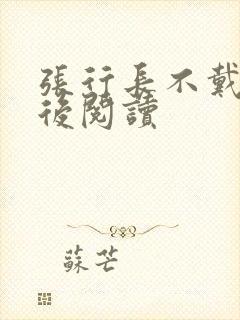 張行長不戴
後閱讀
蘇芒